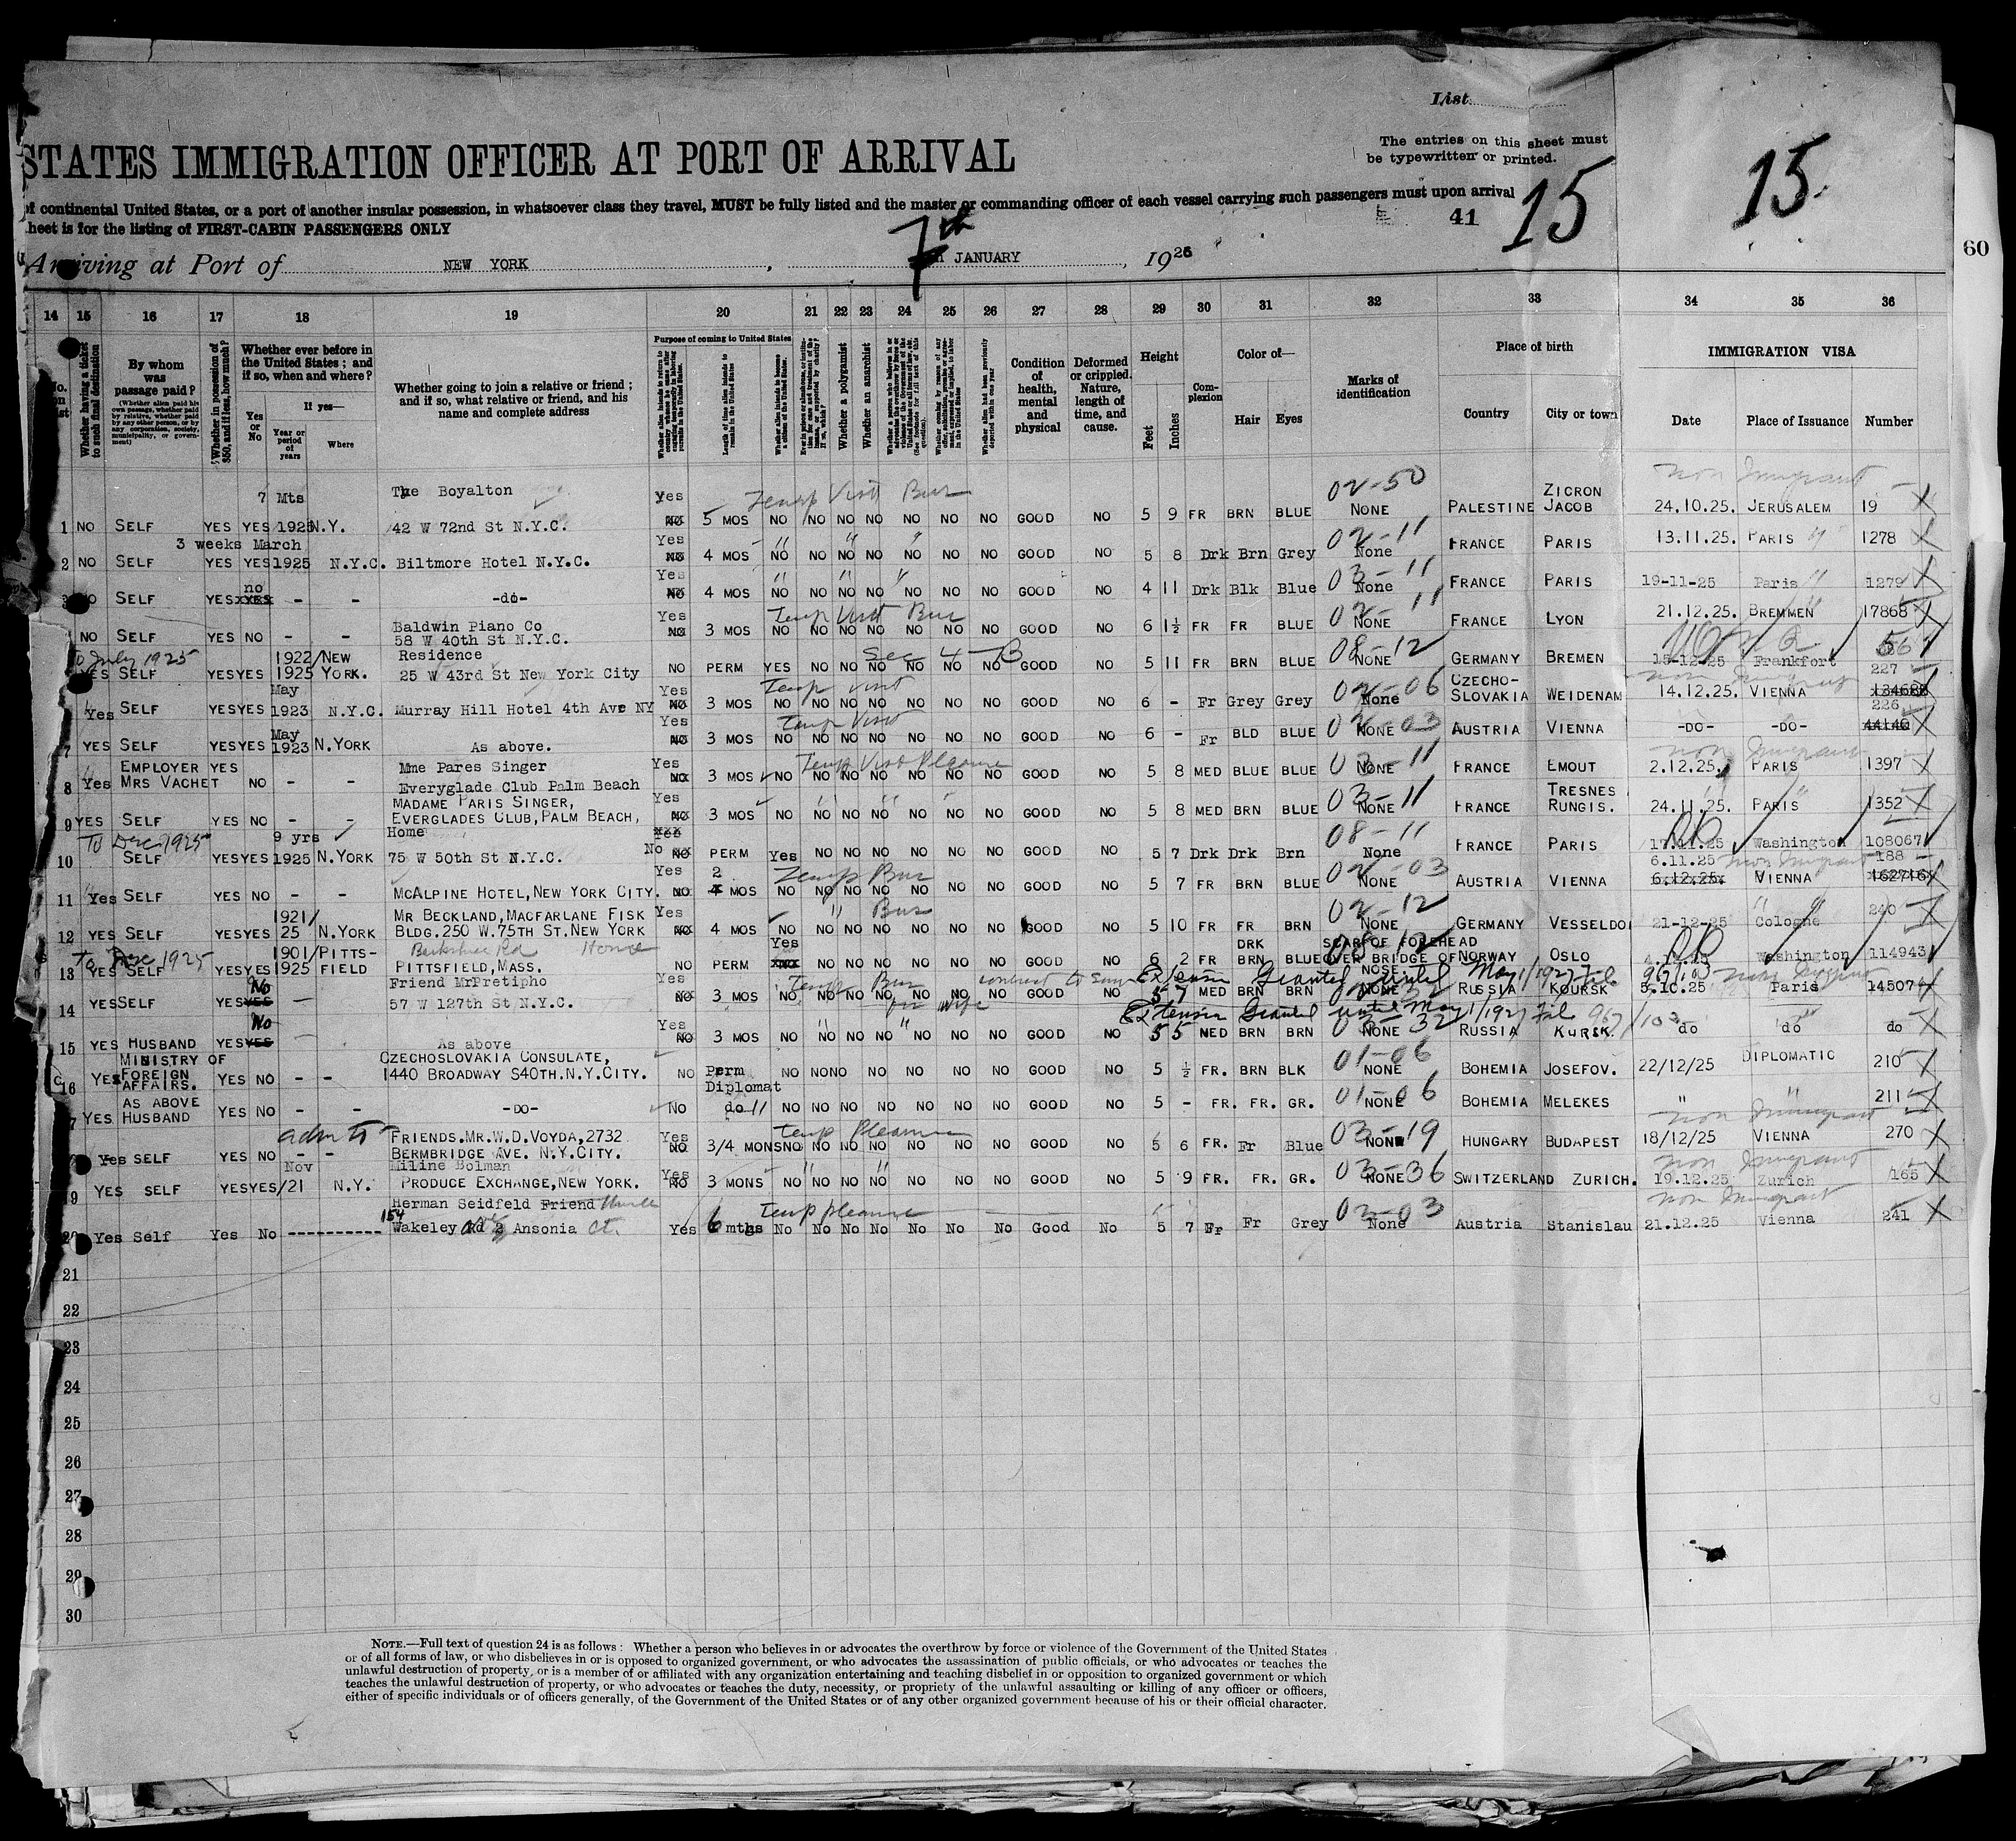 List
The entries on this sheet must
be typewritten or printed.
STATES IMMIGRATION OFFICER AT PORT OF ARRIVAL
15
15
of continental United States, or a port of another insular possession, in whatsoever class they travel, MUST be fully listed and the master or commanding officer of each vessel carrying such passengers must upon arrival
heet is for the listing of FIRST-CABIN PASSENGERS ONLY
41
60
Arriving at Port of NEW YORK , 7th JANUARY , 1926
14 15 16 17 18 19 20 21 22 23 24 25 26 27 28 29 30 31 32 33 34 35 36
Whether having a ticket to such final destination
By whom was passage paid?
(Whether alien paid his own passage, whether paid by relative, whether paid by any other person, or by any corporation, society, municipality, or government)
Whether in possession of $50, and if less, how much?
Whether ever before in the United States; and if so, when and where?
Yes or No
If yes—
Year or period of years
Where
Whether going to join a relative or friend; and if so, what relative or friend, and his name and complete address
Purpose of coming to United States
Length of time alien intends to remain in the United States
Whether alien intends to become a citizen of the United States.
Whether a polygamist
Whether an anarchist
Condition of health, mental and physical
Deformed or crippled. Nature, length of time, and cause.
Height
Feet
Inches
Complexion
Color of—
Hair Eyes
Marks of identification
Place of birth
Country City or town
IMMIGRATION VISA
Date Place of Issuance Number
7 Mts The Boyalton Yes Temp Visit Bus 02-50 ZICRON Non Immigrant
1 NO SELF YES YES 1925 N.Y. 42 W 72nd St N.Y.C. NO 5 MOS NO NO NO NO NO NO NO GOOD NO 5 9 FR BRN BLUE NONE PALESTINE JACOB 24.10.25. JERUSALEM 19
3 weeks March Yes 02-11
2 NO SELF YES YES 1925 N.Y.C. Biltmore Hotel N.Y.C. NO 4 MOS NO NO NO NO NO NO NO GOOD NO 5 8 Drk Brn Grey None FRANCE PARIS 13.11.25. PARIS 1278
no Yes 03-11
3 NO SELF YES YES - - -do- NO 4 MOS NO NO NO NO NO NO NO GOOD NO 4 11 Drk Blk Blue None FRANCE PARIS 19-11-25 Paris 1279
Baldwin Piano Co Yes Temp Visit Bus 02-11
NO SELF YES NO - - 58 W 40th St N.Y.C. NO 3 MOS NO NO NO NO NO NO NO GOOD NO 6 1½ FR FR BLUE NONE FRANCE LYON 21.12.25. BREMMEN 17868
To July 1925 1922/NEW Residence Sec 4-B 08-12
YES SELF YES YES 1925 YORK. 25 W 43rd St New York City NO PERM YES NO NO NO NO NO NO GOOD NO 5 11 FR BRN BLUE NONE GERMANY BREMEN 15-12-25 Frankfort
May Yes Temp visit 02-06 CZECHO- Non Immigrant 227
Yes SELF YES YES 1923 N.Y.C. Murray Hill Hotel 4th Ave NY NO 3 MOS NO NO NO NO NO NO NO GOOD NO 6 - Fr Grey Grey None SLOVAKIA WEIDENAM 14.12.25. VIENNA
May Yes Temp Visit 02-03 226
7 YES SELF YES YES 1923 N.YORK As above. NO 3 MOS NO NO NO NO NO NO NO GOOD NO 6 - Fr BLD BLUE NONE AUSTRIA VIENNA -DO- -DO- 44140
EMPLOYER YES Mme Pares Singer Yes Temp Visit Pleasure 03-11 Non Immigrant
8 Yes MRS VACHET NO - - Everyglade Club Palm Beach NO 3 MOS NO NO NO NO NO NO NO GOOD NO 5 8 MED BLUE BLUE NONE FRANCE EMOUT 2.12.25. PARIS 1397
MADAME PARIS SINGER, Yes 03-11 TRESNES
9 YES SELF YES NO - - EVERGLADES CLUB, PALM BEACH, NO 3 MOS NO NO NO NO NO NO NO GOOD NO 5 8 MED BRN BLUE NONE FRANCE RUNGIS. 24.11.25. PARIS 1352
To Dec 1925 9 yrs Home Yes 08-11
10 SELF YES YES 1925 N.YORK 75 W 50th St N.Y.C. No NO PERM Yes NO NO NO NO NO NO GOOD NO 5 7 Drk Drk Brn None FRANCE PARIS 17.11.25 Washington 108067
Yes 2 Temp Bus 02-03 6.11.25 Non Immigrant 188
11 Yes SELF YES NO - - MCALPINE HOTEL, NEW YORK CITY. NO 4 MOS NO NO NO NO NO NO NO GOOD NO 5 7 FR BRN BLUE NONE AUSTRIA VIENNA 6.12.25. VIENNA 162716
1921/ MR BECKLAND, MACFARLANE FISK Yes Bus 02-12 240
12 YES SELF YES YES 25 N.YORK BLDG. 250 W. 75TH ST. NEW YORK NO 4 MOS NO NO NO NO NO NO NO GOOD NO 5 10 FR FR BRN NONE GERMANY VESSELDOI 21-12-25 Cologne
To Dec 1925 1901/PITTS- Berkshire Rd Home Yes DRK SCAR OF FOREHEAD
13 YES SELF YES YES 1925 FIELD PITTSFIELD, MASS. NO PERM NO NO NO NO NO NO GOOD NO 6 2 FR BRN BLUE OVER BRIDGE OF NOSE. NORWAY OSLO Washington 114943
No Friend Mr Pretipho Yes Temp Bus contract to Extension Granted until May 1/1927 Non Immigrant
14 YES SELF YES YES - 57 W 127th St N.Y.C. NO 3 MOS NO NO NO NO NO NO NO GOOD NO 5 7 MED BRN BRN NONE RUSSIA KOURSK 5.10.25 Paris 14507
No Yes for wife Extension Granted until May 1/1927 File 967/103
15 YES HUSBAND YES YES As above NO 3 MOS NO NO NO NO NO NO NO GOOD NO 5 5 MED BRN BRN NONE RUSSIA KURSK do do do
MINISTRY OF CZECHOSLOVAKIA CONSULATE, 01-06 DIPLOMATIC
16 YES FOREIGN AFFAIRS. YES NO - - 1440 BROADWAY S40TH. N.Y.CITY. NO Perm Diplomat NO NO NO NO NO NO GOOD NO 5 ½ FR. BRN BLK NONE BOHEMIA JOSEFOV. 22/12/25 210
AS ABOVE 01-06
7 YES HUSBAND YES NO - - -DO- NO do NO NO NO NO NO NO NO GOOD NO 5 - FR. FR. GR. NONE BOHEMIA MELEKES " " 211
FRIENDS. MR. W.D. VOYDA, 2732 Yes temp Pleasure 03-19 Non Immigrant
Yes SELF YES NO - - BERMBRIDGE AVE. N.Y.CITY. NO 3/4 MONS NO NO NO NO NO NO NO GOOD NO 5 6 FR. Fr Blue NONE HUNGARY BUDAPEST 18/12/25 VIENNA 270
Nov Miline Bolman Yes 03-36 Non Immigrant
19 YES SELF YES YES/21 N.Y. PRODUCE EXCHANGE, NEW YORK. NO 3 MONS NO NO NO NO NO NO NO GOOD NO 5 9 FR. FR. GR. NONE SWITZERLAND ZURICH. 19.12.25 Zurich 165
Herman Seidfeld Friend Uncle temp pleasure 03-03 Non Immigrant
20 Yes Self Yes No ---------- 154 Wakeley Ansonia Ct. Yes 6 mths No No No No No No No Good No 5 7 Fr Fr Grey None Austria Stanislau 21.12.25 Vienna 241
21
22
23
24
25
26
27
28
29
30
NOTE.—Full text of question 24 is as follows: Whether a person who believes in or advocates the overthrow by force or violence of the Government of the United States
or of all forms of law, or who disbelieves in or is opposed to organized government, or who advocates the assassination of public officials, or who advocates or teaches the
unlawful destruction of property, or is a member of or affiliated with any organization entertaining and teaching disbelief in or opposition to organized government or which
teaches the unlawful destruction of property, or who advocates or teaches the duty, necessity, or propriety of the unlawful assaulting or killing of any officer or officers,
either of specific individuals or of officers generally, of the Government of the United States or of any other organized government because of his or their official character.